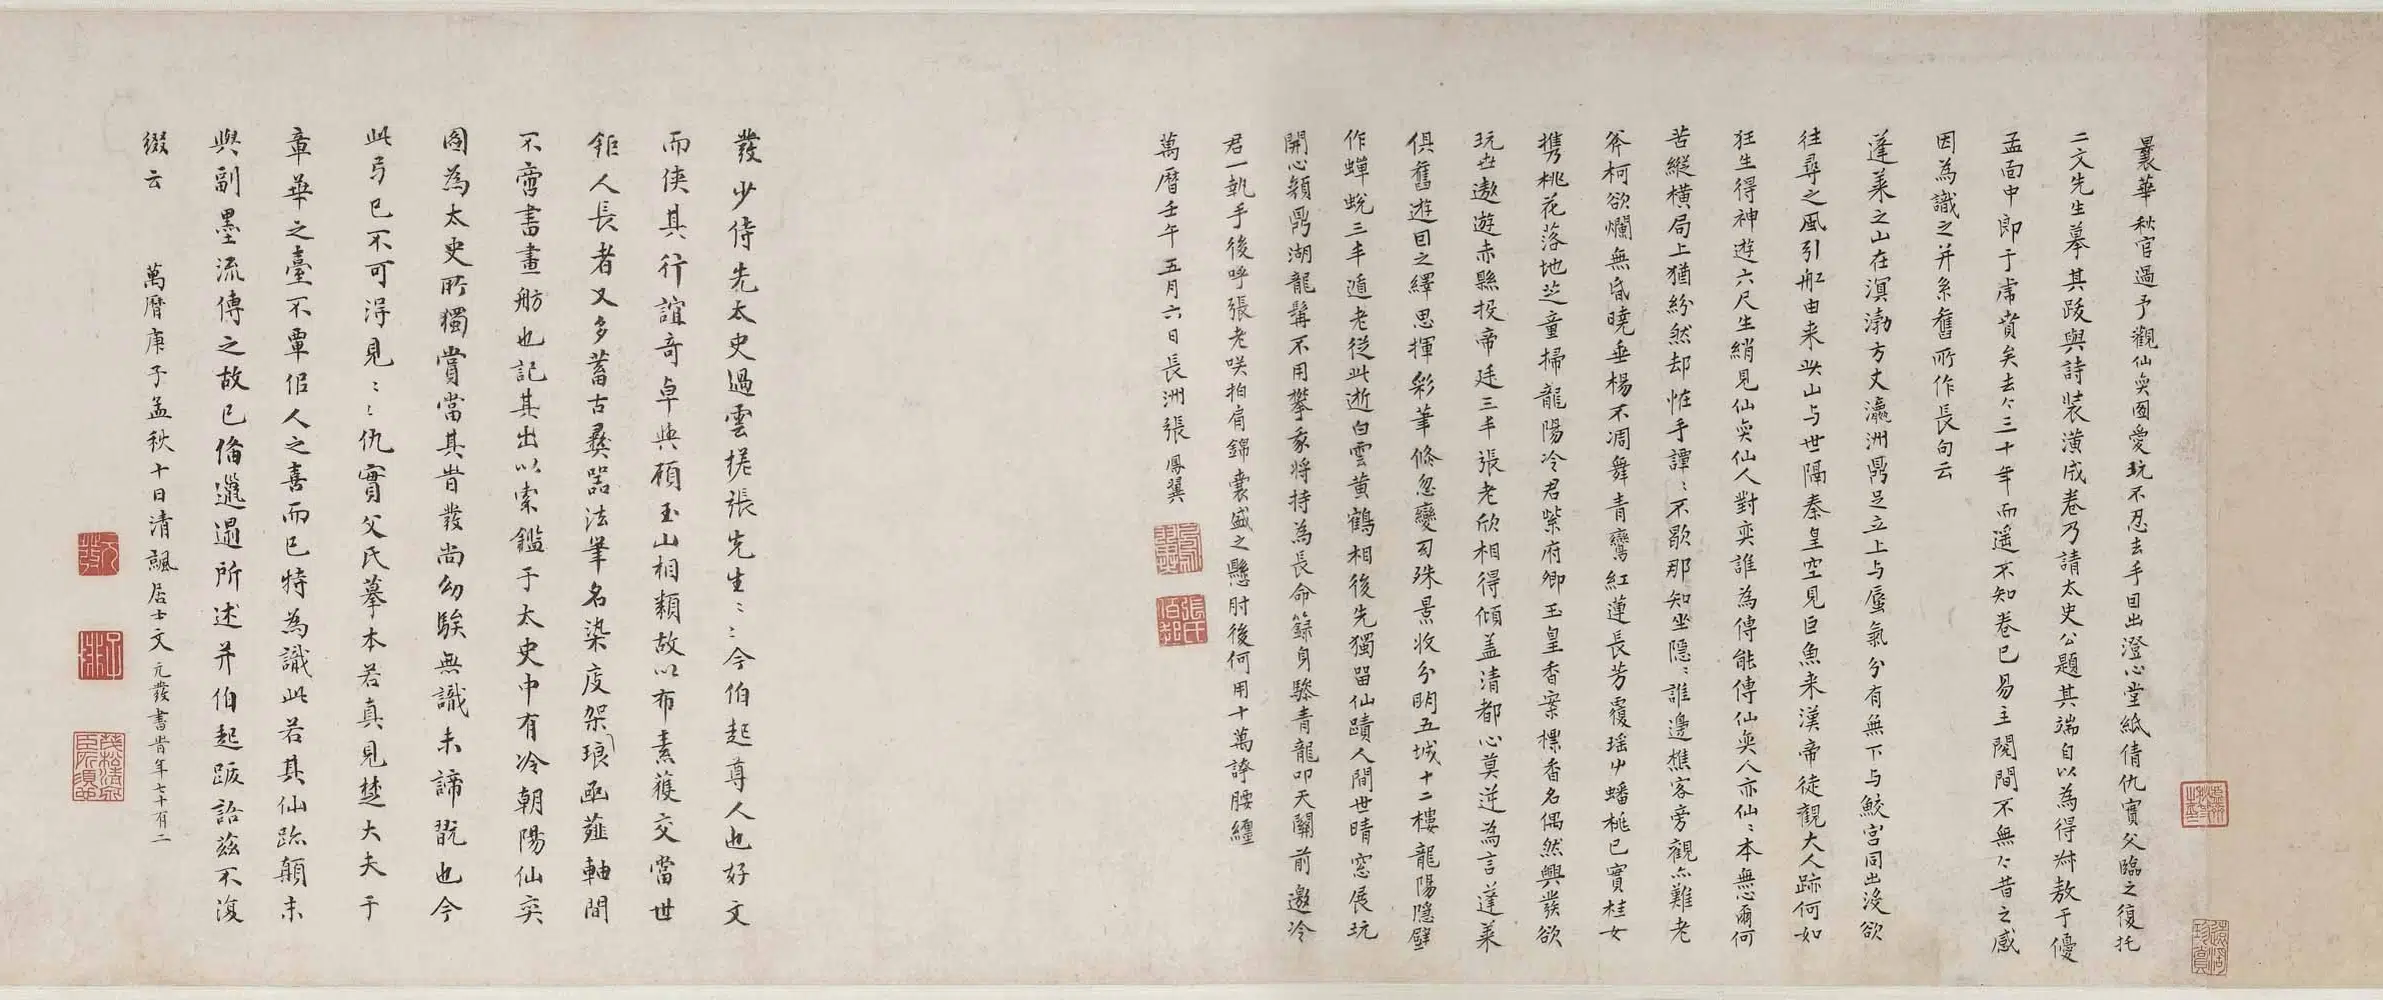 曩華秋官過予觀仙奕圖愛玩不忍去手因出澄心堂紙倩仇實父臨之復托
二文先生摹其跋與詩裝潢成卷乃請太史公題其端自以為得叔敖于優
孟面中郎于虎賁矣去今三十年而遙不知卷已易主閱間不無今昔之感
因為識之并系舊所作長句云
蓬萊之山在溟渤方丈瀛洲鼎足立上与蜃氣分有無下与鮫宮同出沒欲
往尋之風引舡由来此山与世隔秦皇空見巨魚来漢帝徒觀大人跡何如
狂生得神遊六尺生綃見仙奕仙人對奕誰為傳能傳仙奕人亦仙〻本無心爾何
苦縱橫局上猶紛然却恠手譚〻不歇那知坐隱〻誰邊樵客旁觀亦難老
斧柯欲爛無昏曉垂楊不凋舞青鸞紅蓮長芳覆瑤艸蟠桃已實桂女
攜桃花落地芝童掃龍陽冷君紫府卿玉皇香案標香名偶然興發欲
玩世遨遊赤縣投帝廷三丰張老欣相得傾盖清都心莫逆為言蓬萊
俱舊遊因之繹思揮彩筆倏忽變幻殊景收分明五城十二樓龍陽隱壁
作蟬蛻三丰遁老從此逝白雲黃鶴相後先獨留仙蹟人間世晴窓展玩
開心顏鼎湖龍髯不用攀象將持為長命籙身驂青龍叩天關前邀冷
君一執手後呼張老咲拍肩錦囊盛之懸肘後何用十萬誇腰纏
萬曆壬午五月六日長洲張鳳翼
發少侍先太史過雲槎張先生〻〻今伯起尊人也好文
而俠其行誼奇卓與顧玉山相類故以布素獲交當世
鉅人長者又多蓄古彝器法筆名染庋架琅函薤軸間
不啻書畫舫也記其出以索鑑于太史中有冷朝陽仙奕
圖為太史所獨賞當其旹發尚幼騃無識未諦翫也今
此弓已不可淂見〻〻仇實父氏摹本若真見楚大夫于
章華之臺不覃佀人之喜而已特為識此若其仙跡顛末
與副墨流傳之故已俻邋遢所述并伯起跋語茲不復
綴云 萬曆庚子孟秋十日清颿居士文元發書旹年七十有二